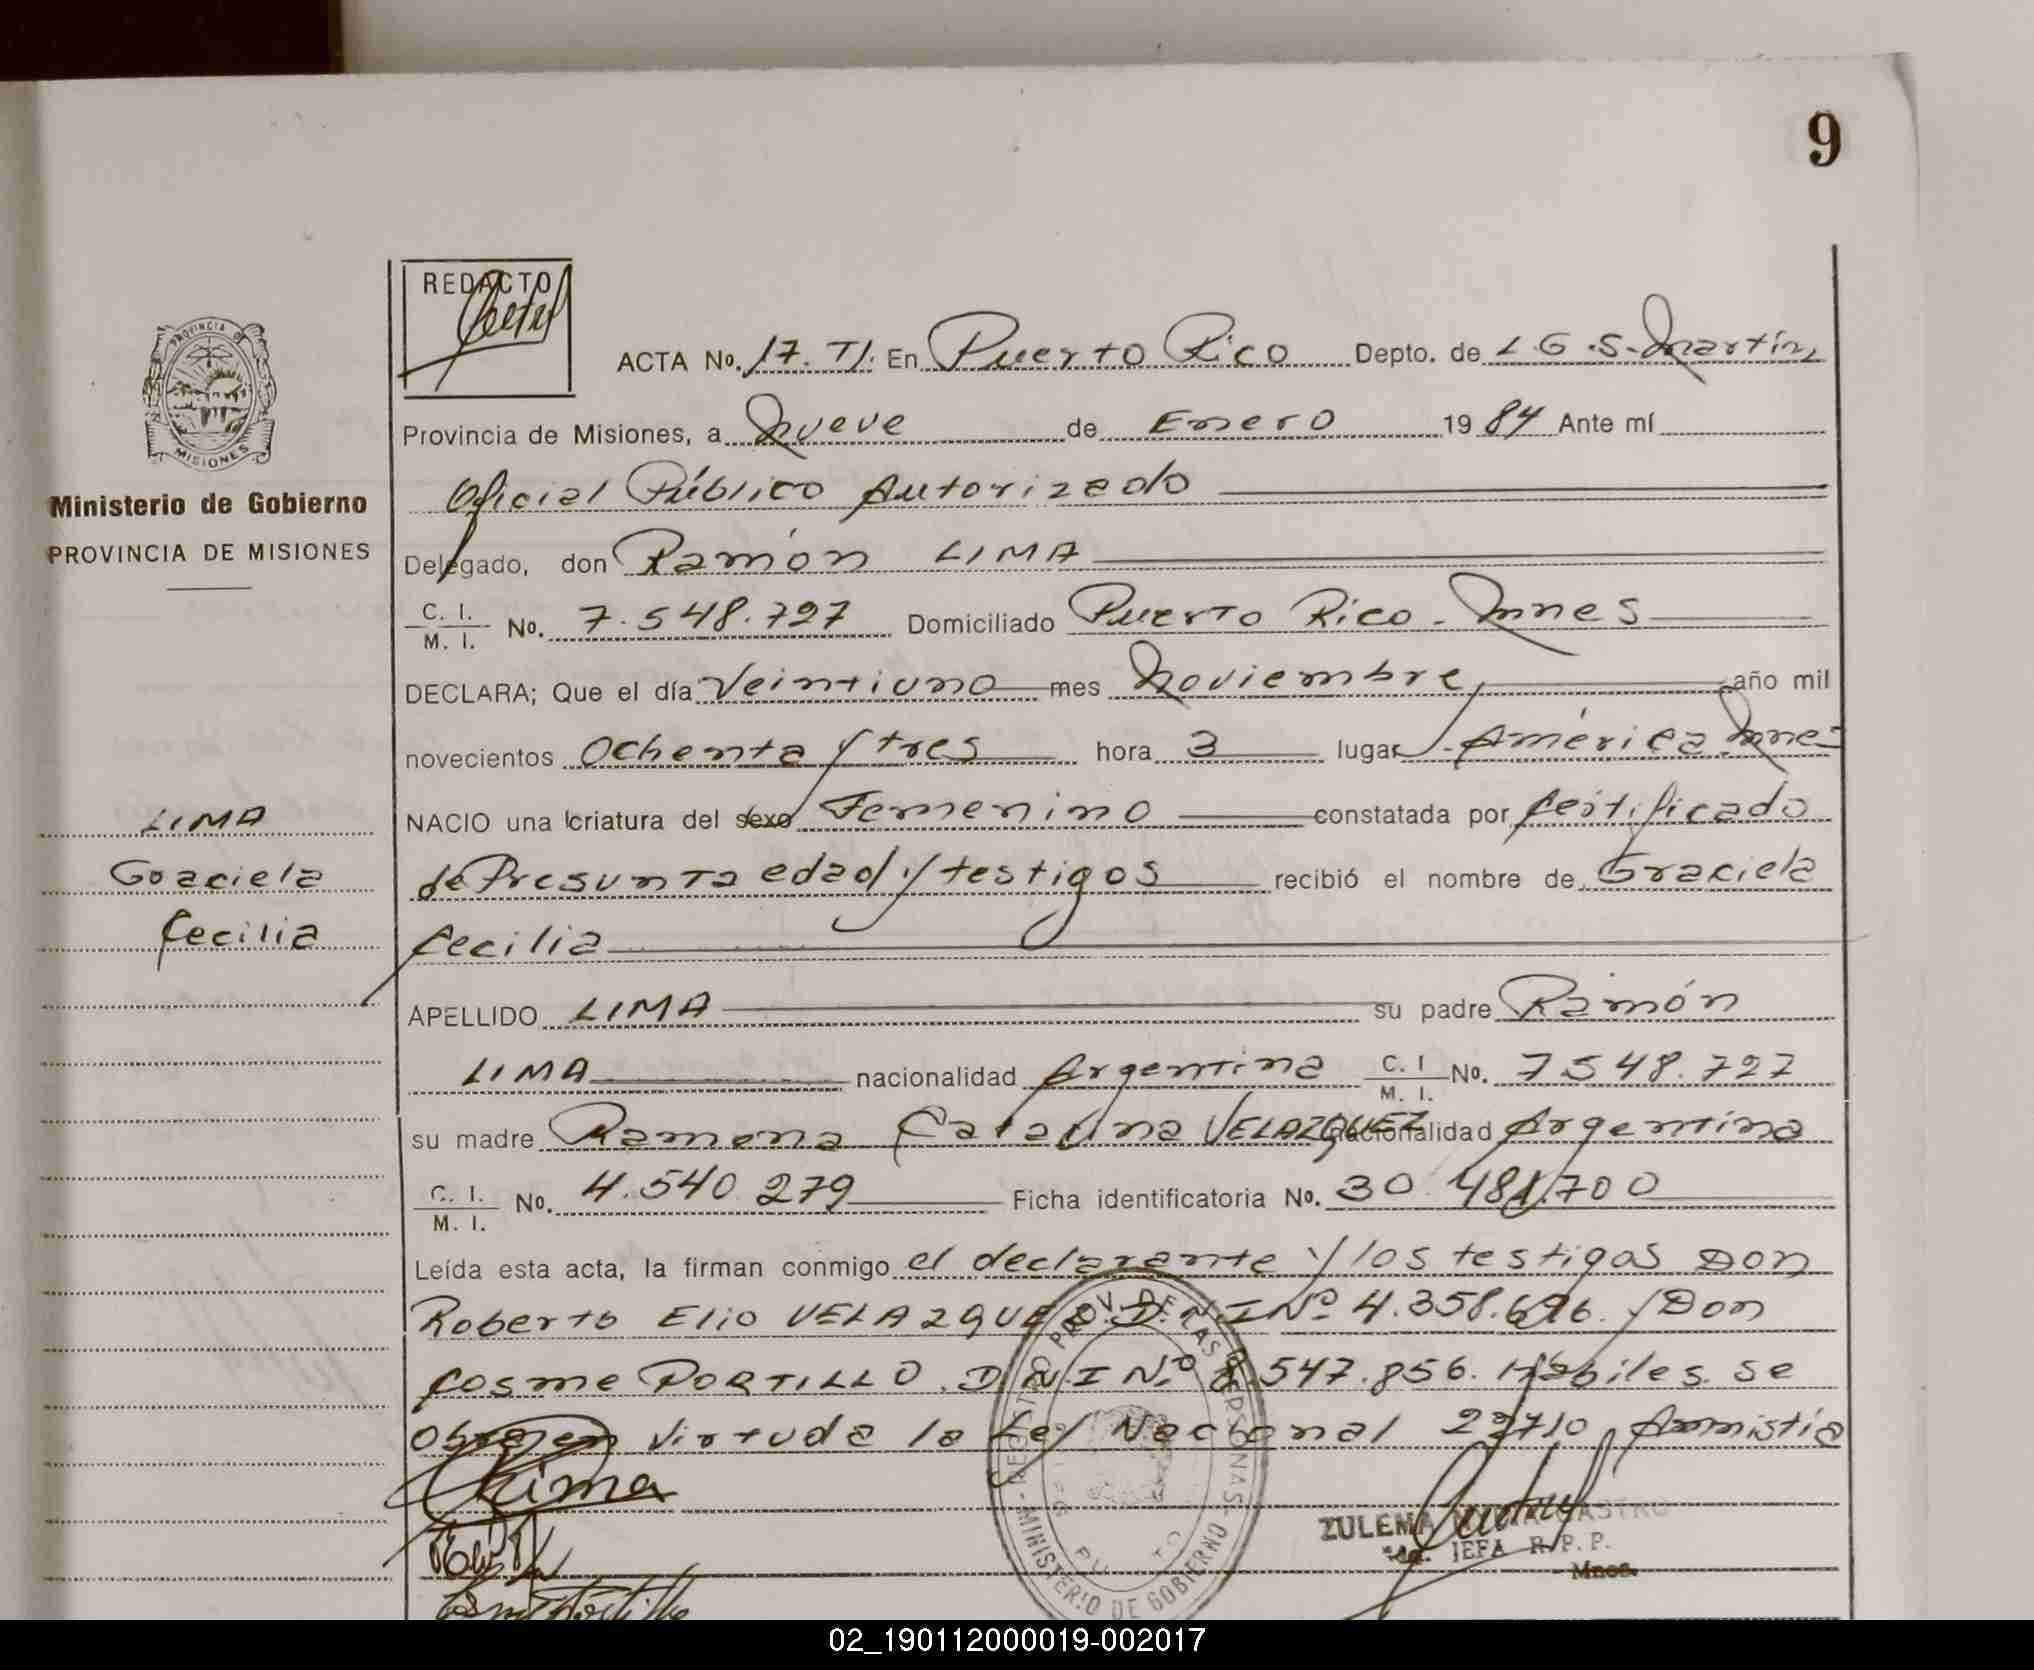 9
REDACTO
ACTA No. 17. TI. En Puerto Rico Depto. de L.G.S. Martín
Provincia de Misiones, a Nueve de Enero 1984 Ante mí
Oficial Público Autorizado
Delegado, don Ramón LIMA
C. I.
M. I. No. 7.548.727 Domiciliado Puerto Rico - Mnes
DECLARA; Que el día Veintiuno mes Noviembre año mil
novecientos Ochenta y tres hora 3 lugar América Mnes
NACIO una criatura del sexo Femenino constatada por Certificado
de Presunta edad y testigos recibió el nombre de Graciela
Cecilia
APELLIDO LIMA su padre Ramón
LIMA nacionalidad Argentina C. I
M. I. No. 7548.727
su madre Ramona Catalina VELAZQUEZ nacionalidad Argentina
C. I.
M. I. No. 4.540.279 Ficha identificatoria No. 30.481.700
Leída esta acta, la firman conmigo el declarante y los testigos Don
Roberto Elio VELAZQUEZ. D.N.I Nº 4.358.696. y Don
Cosme PORTILLO. D.N.I Nº 8.547.856. Hábiles. se
obra en virtud a la Ley Nacional 22710 Amnistia
PROVINCIA DE
MISIONES
Ministerio de Gobierno
PROVINCIA DE MISIONES
LIMA
Graciela
Cecilia
Lima
REGISTRO PROV. DE LAS PERSONAS
MINISTERIO DE GOBIERNO
ZULEMA CASTRO
JEFA R. P. P.
Mnes.
02_190112000019-002017